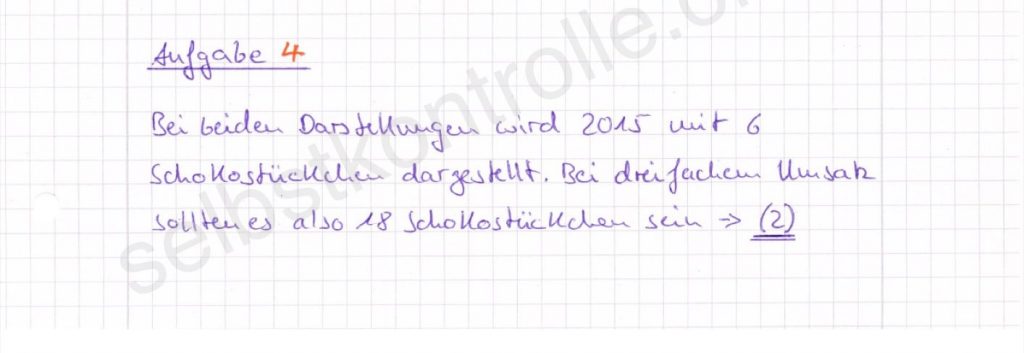 Aufgabe 4
Bei beiden Darstellungen wird 2015 mit 6
Schokostückchen dargestellt. Bei dreifachem Umsatz
sollten es also 18 Schokostückchen sein → (2)
selbstkontrolle.o